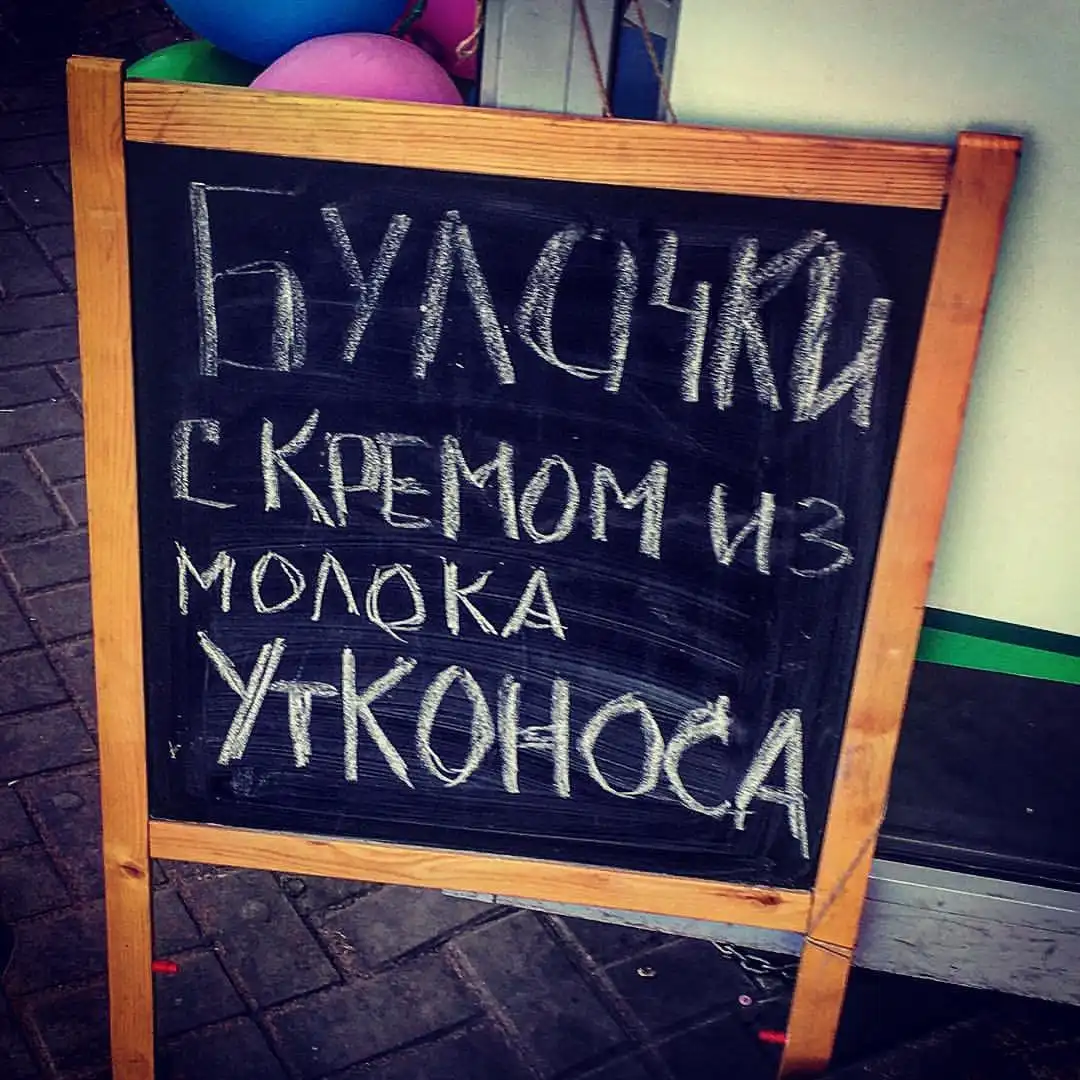 БУЛОЧКИ
С КРЕМОМ ИЗ
МОЛОКА
УТКОНОСА